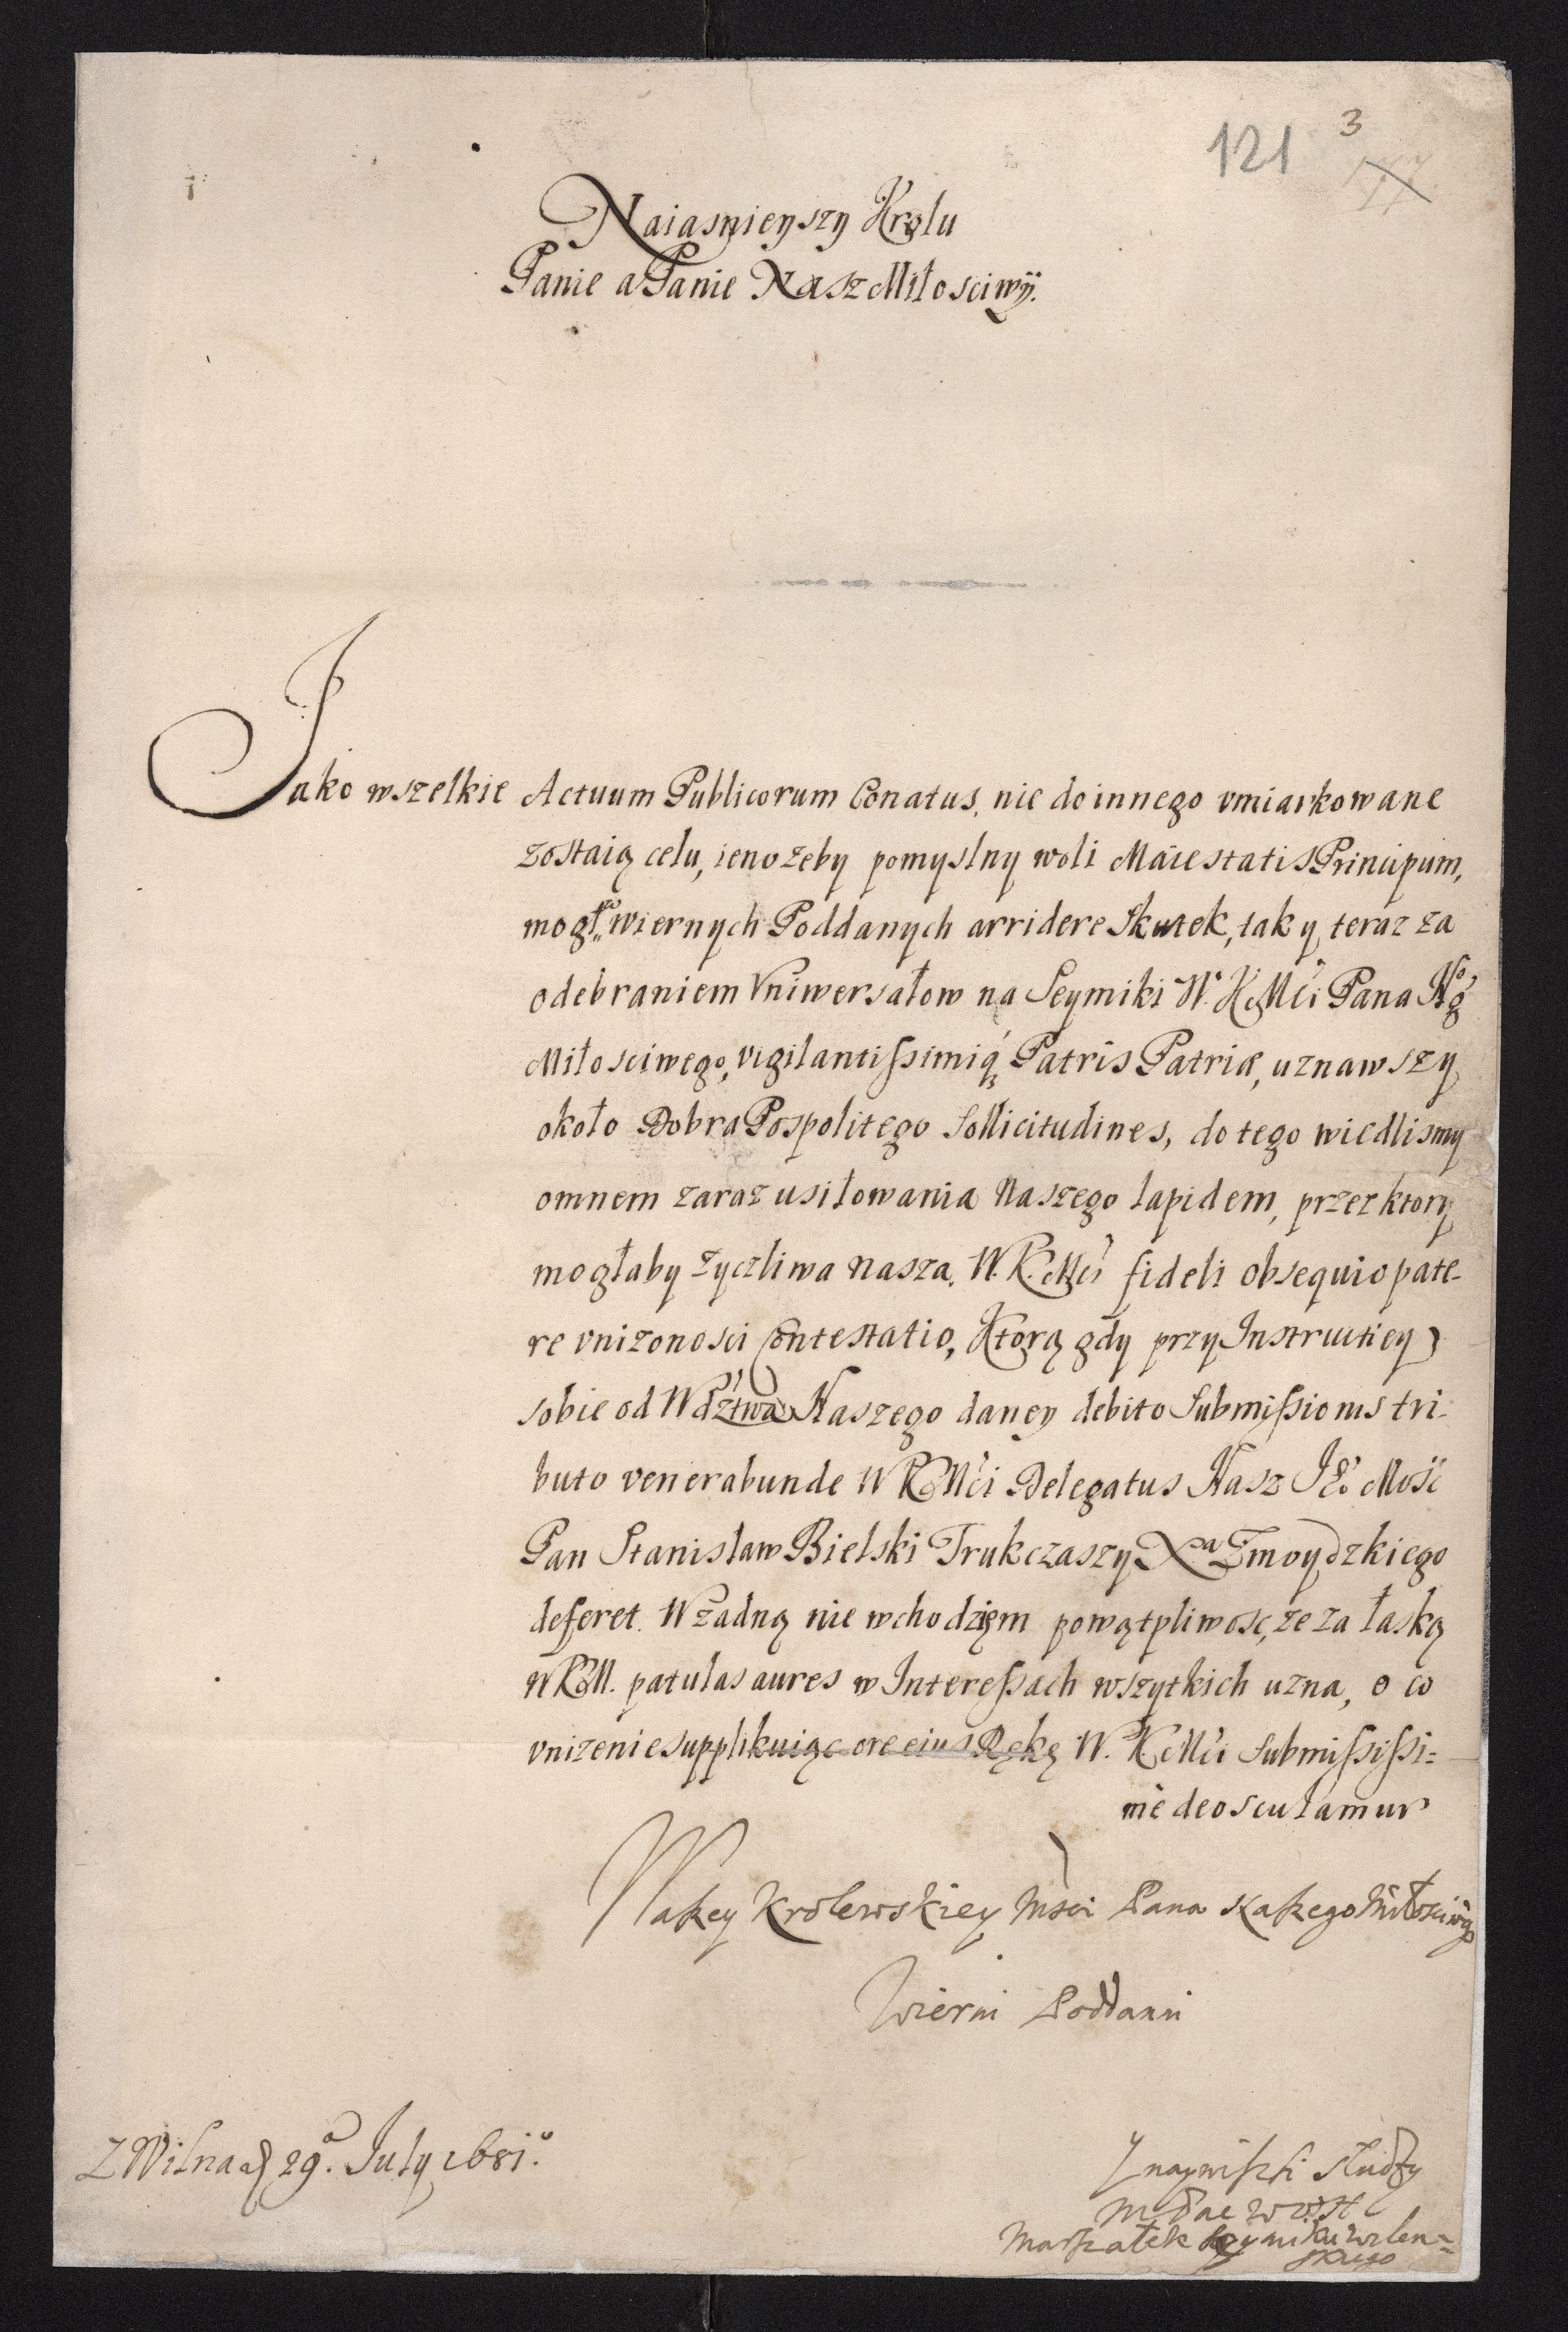 121 3
177
Naiasnieyszy Krolu
Panie a Panie Nasz Miłosciwÿ.
Jako wszelkie Actuum Publicorum Conatus, nie do innego vmiarkowane
zostaią celu, ieno żeby pomyslny woli Maiestatis Principum,
mogł wiernych Poddanych arridere Skutek, tak y teraz za
odebraniem Vniwersałow na Seymiki W. K. Mći Pana Ngo
Miłosciwego, vigilantissimią Patris Patriæ, uznawszy
około Dobra Pospolitego Sollicitudines, do tego wiedlismy
omnem zaraz usiłowania Naszego lapidem, przez ktory
mogłaby życzliwa nasza, W. K. Mći fideli obsequio pate-
re vnizonosci Contestatio, Ktorą gdy przy Instructiey
sobie od Wdztwa Naszego daney debito Submissionis tri-
buto venerabunde W K Mći Delegatus Nasz Jeo Mość
Pan Stanisław Bielski Trukczaszy Xa Zmoydzkiego
deferet. W żadną nie wchodzięm powątpliwosc, że za łaską
W K M. patulas aures w Interessach wszytkich uzna, o co
vnizenie supplikuiąc ore eius Rękę W. K. Mći Submississi=
mè deosculamur
Waszey Krolewskiey Msci Pana Naszego Miłosciwgo
Wierni Poddani
Z Wilna d 29a. July 1681o.
Y naynisszi słudzy
Marszałek Seymiku Wilen=
skiego